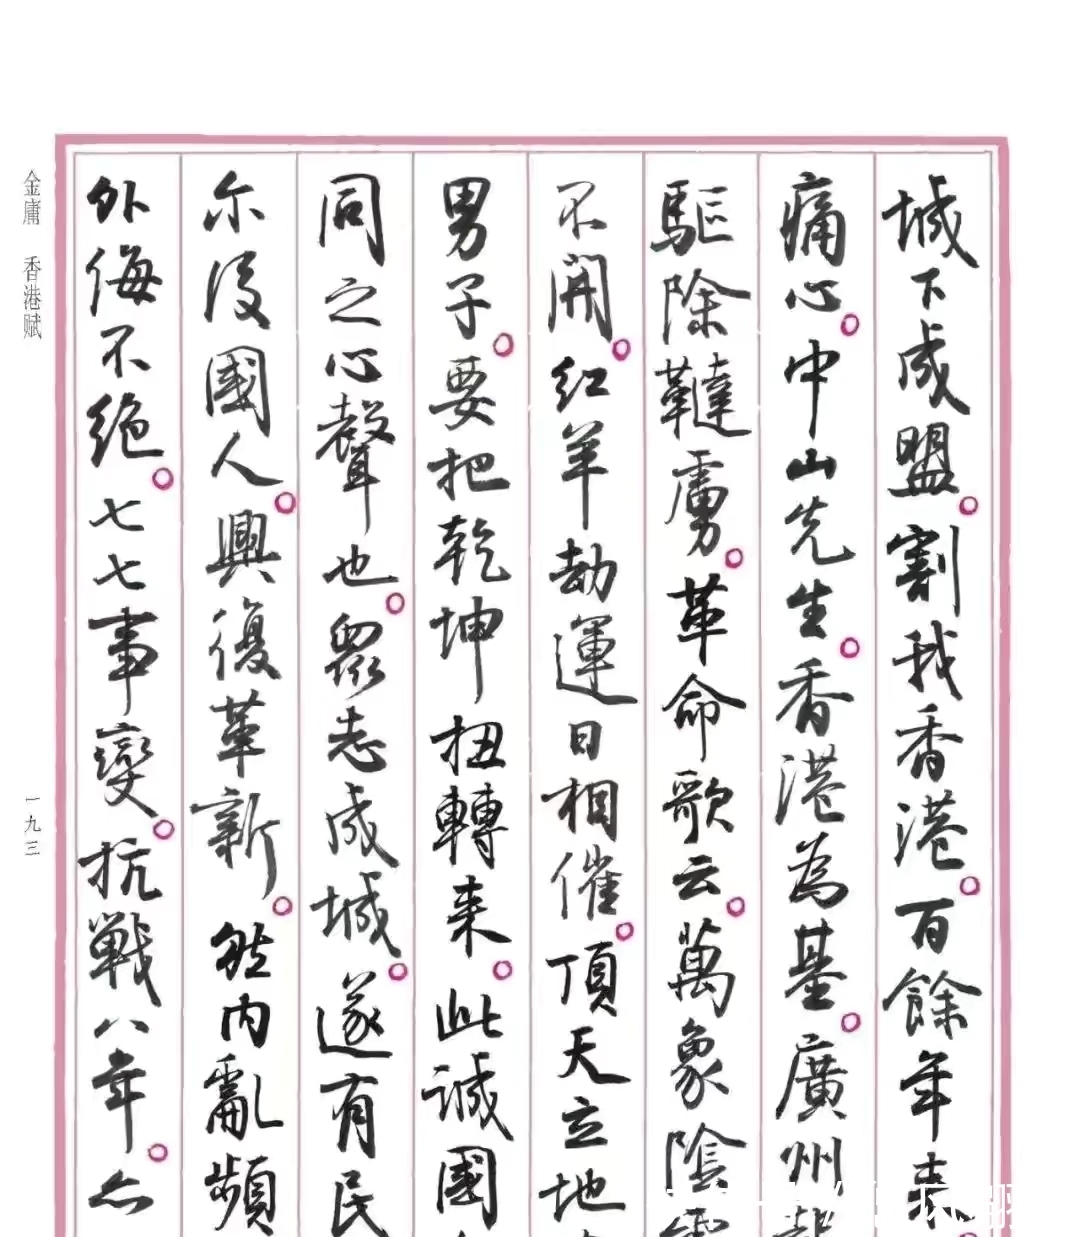 城下成盟。割我香港。百餘年來
痛心。中山先生。香港為基。廣州
驅除韃虜。革命歌云。萬象陰
不開。紅羊劫運日相催。頂天立地
男子。要把乾坤扭轉来。此誠國
同之心聲也。眾志成城。遂有民
尔後國人。興復革新。然内亂頻
外侮不絕。七七事變。抗戰八年。
金庸 香港赋
一九三